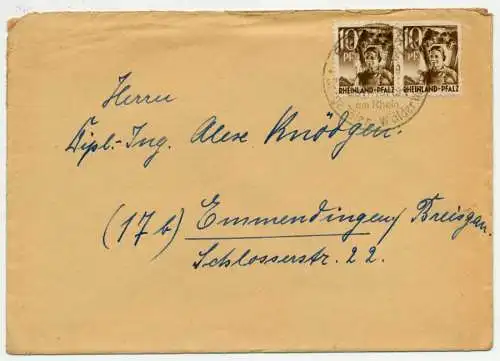 10 10
PF PF
RHEINLAND-PFALZ RHEINLAND-PFALZ
am Rhein
Herrn
Dipl.-Ing. Alex. Knödgen.
(17b) Emmendingen/Breisgau.
Schlosserstr. 22.